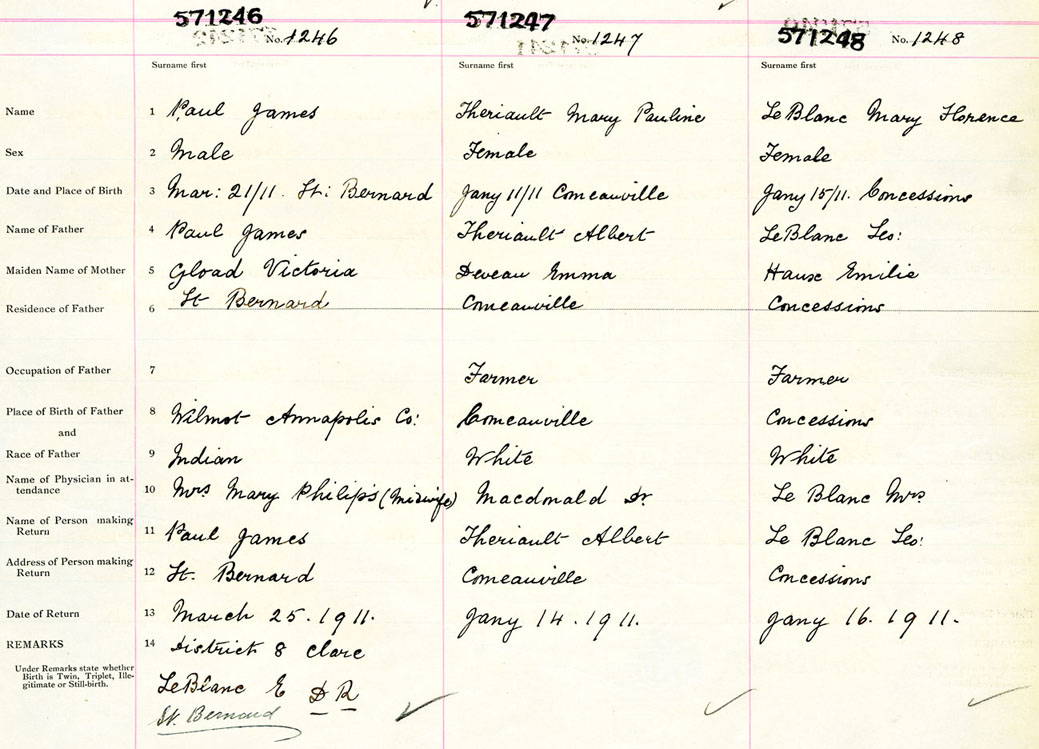 571246 571247 571248
No. 1246 No. 1247 No. 1248
Surname first Surname first Surname first
Name 1 Paul James Theriault Mary Pauline LeBlanc Mary Florence
Sex 2 Male Female Female
Date and Place of Birth 3 Mar: 21/11. St: Bernard Jany 11/11 Comeauville Jany 15/11. Concessions
Name of Father 4 Paul James Theriault Albert LeBlanc Leo:
Maiden Name of Mother 5 Gload Victoria Deveau Emma Hause Emilie
Residence of Father 6 St Bernard Comeauville Concessions
Occupation of Father 7 Farmer Farmer
Place of Birth of Father 8 Wilmot Annapolis Co: Comeauville Concessions
and
Race of Father 9 Indian White White
Name of Physician in at-
tendance 10 Mrs Mary Philips (Midwife) Macdonald Dr. Le Blanc Mrs
Name of Person making
Return 11 Paul James Theriault Albert Le Blanc Leo:
Address of Person making
Return 12 St. Bernard Comeauville Concessions
Date of Return 13 March 25. 1911. Jany 14. 1911. Jany 16. 1911.
REMARKS 14 District 8 Clare
Under Remarks state whether
Birth is Twin, Triplet, Ille-
gitimate or Still-birth.
LeBlanc E D R
St. Bernard